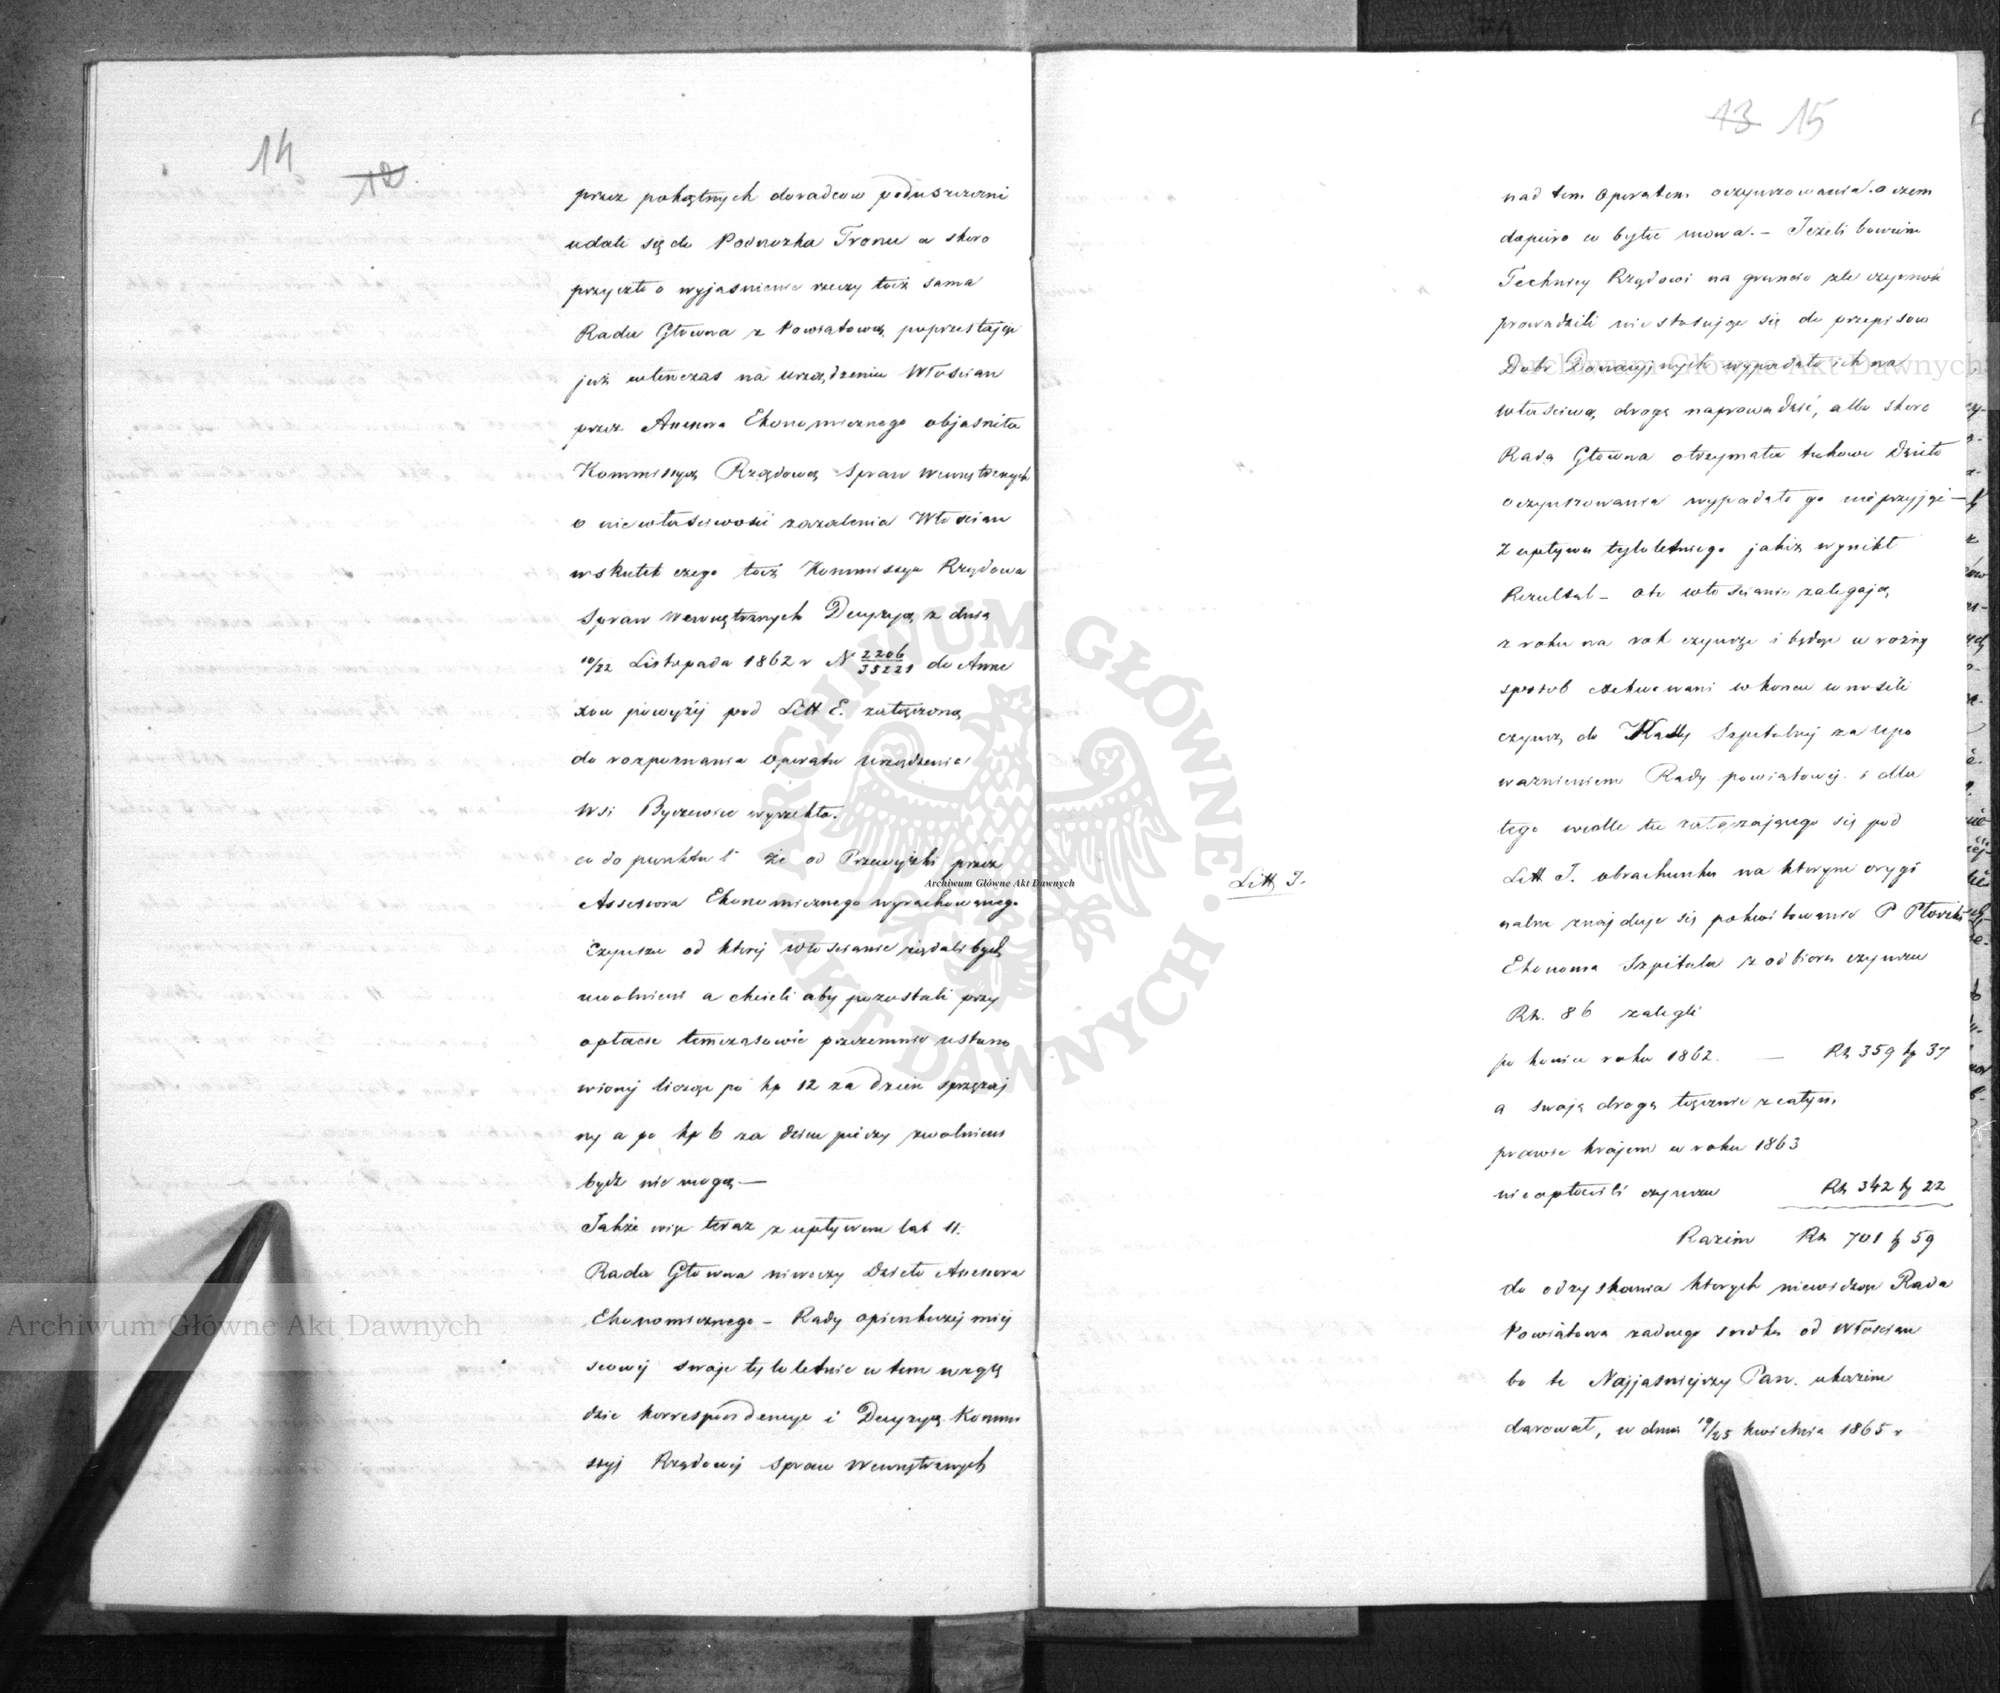 14 12
przez pokątnych doradców poduszczeni
udali się do Podnozka Tronu a skoro
przyszło o wyjasnienie rzeczy taż sama
Rada Główna z Powiatową poprzestając
już wtenczas na urządzeniu Włoscian
przez Assesora Ekonomicznego objasniła
Kommissyą Rządową Spraw Wewnętrznych
o niewłasciwosci zazalenia Włoscian
wskutek czego taż Kommissya Rządowa
Spraw Wewnętrznych Decyzyą z dnia
10/22 Listopada 1862 r N 2206/35221 do Anne
xów powyżej pod Litt E. załączoną
do rozpoznania Operatu Urządzenia
Wsi Byszewice wyrzekła.
co do punktu 1 że od Przewyżki przez
Assessora Ekonomicznego wyrachowanego
Czynszu od której Włoscianie żądali być
uwolnieni a chcieli aby pozostali przy
opłacie tymczasowie przezemnie ustano
wionej licząc po kp 12 za dzień sprzężaj
ny a po kp 6 za dzień pieszy zwolnieni
bydź nie mogą —
Jakże więc teraz z upływem lat 11.
Rada Główna niweczy Dzieło Assesora
Ekonomicznego – Rady opiekuńczej miej
scowej swoje tyloletnie w tem wzglę
dzie korrespondencye i Decyzyą Kommi
ssyi Rządowej Spraw Wewnętrznych
13 15
nad tem Operatem oczynszowania. o czem
dopiero w bytce mowa. – Jeżeli bowiem
Technicy Rządowi na gruncie zle czynność
prowadzili nie stosując się do przepisow
Dobr Donacyjnych wypadało ich na
własciwą drogę naprowadzić, albo skoro
Rada Główna otrzymała takowe Dzieło
oczynszowania wypadało go nieprzyjąć –
Z upływu tyloletniego jakiż wynikł
Rezultat – Oto włoscianie zalegają
z roku na rok czynsze i będąc w rożny
sposob exekwowani w koncu wnosili
czynsz do Kassy Szpitalnej za upo
ważnieniem Rady powiatowej i dla
tego wedle tu załączającego się pod
Litt J. Litt J. obrachunku na którym orygi
nalne znajduje się pokwitowanie P
Ekonoma Szpitala z odbioru czynszu
Rs. 86 zalegli
po koniec roku 1862. — Rs 359 kp 37
a swoją drogą łącznie z całym
prawie krajem w roku 1863
nieopłacili czynszu Rs 342 kp 22
Razem Rs 701 kp 59
do odzyskania ktorych niewidząc Rada
Powiatowa zadnego srodka od Włoscian
bo te Najjasniejszy Pan. ukazem
darował, w dniu kwietnia 1865 r
Archiwum Główne Akt Dawnych
Archiwum Główne Akt Dawnych
Archiwum Główne Akt Dawnych
ARCHIWUM GŁÓWNE AKT DAWNYCH